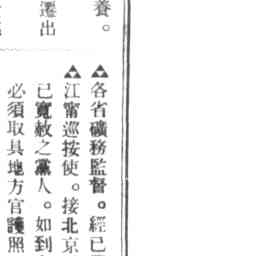 養。
遷出
▲各省礦務監督。經已
▲江甯巡按使。接北京
已寬赦之黨人。如到
必須取具地方官護照